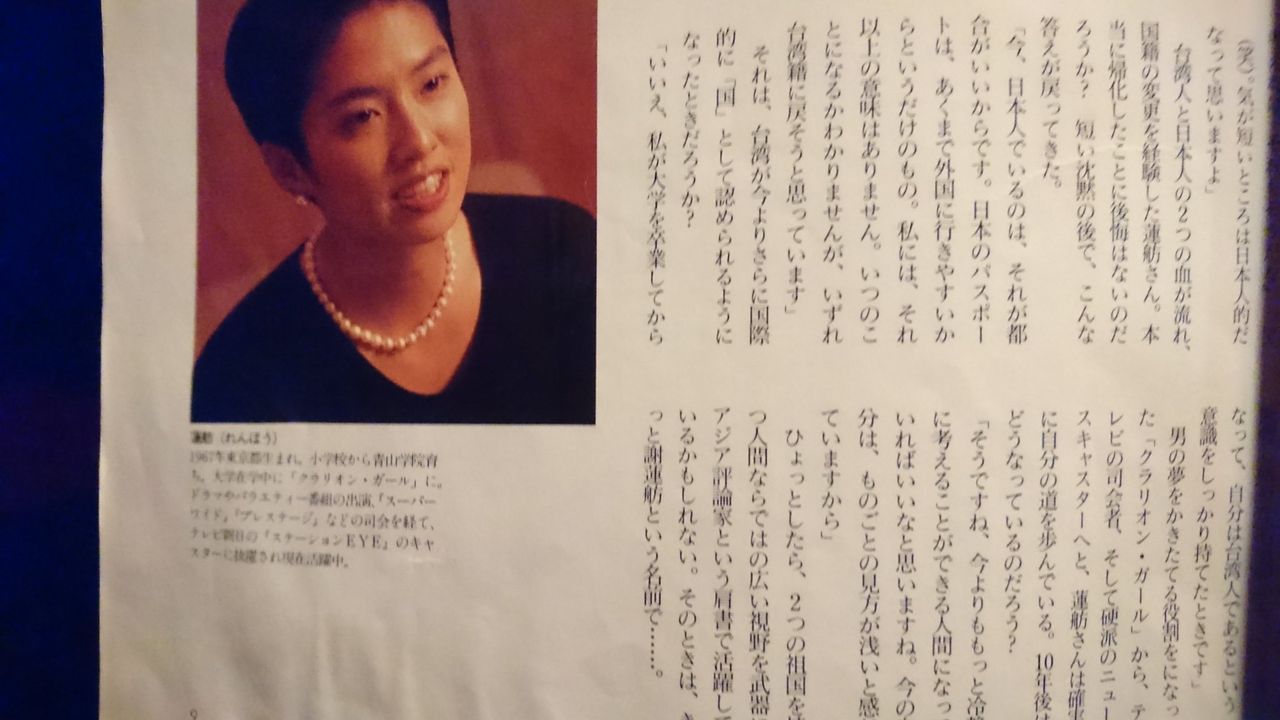 (笑)。気が短いところは日本人的だ
なって思いますよ」
台湾人と日本人の2つの血が流れ、
国籍の変更を経験した蓮舫さん。本
当に帰化したことに後悔はないのだ
ろうか? 短い沈黙の後で、こんな
答えが戻ってきた。
「今、日本人でいるのは、それが都
合がいいからです。日本のパスポー
トは、あくまで外国に行きやすいか
らというだけのもの。私には、それ
以上の意味はありません。いつのこ
とになるかわかりませんが、いずれ
台湾籍に戻そうと思っています」
それは、台湾が今よりさらに国際
的に「国」として認められるように
なったときだろうか?
「いいえ、私が大学を卒業してから
なって、自分は台湾人であるという
意識をしっかり持てたときです」
男の夢をかきたてる役割をになっ
た「クラリオン・ガール」から、テ
レビの司会者、そして硬派のニュー
スキャスターへと、蓮舫さんは確実
に自分の道を歩んでいる。10年後は
どうなっているのだろう?
「そうですね、今よりももっと冷静
に考えることができる人間になって
いればいいなと思いますね。今の
分は、ものごとの見方が浅いと感
ていますから」
ひょっとしたら、2つの祖国を
つ人間ならではの広い視野を武器に
アジア評論家という肩書で活躍して
いるかもしれない。そのときは、き
っと謝蓮舫という名前で……。
蓮舫(れんほう)
1967年東京都生まれ。小学校から青山学院育
ち。大学在学中に「クラリオン・ガール」に。
ドラマやバラエティー番組の出演、『スーパー
ワイド』『プレステージ』などの司会を経て、
テレビ朝日の『ステーションEYE』のキャ
スターに抜擢され現在活躍中。
9